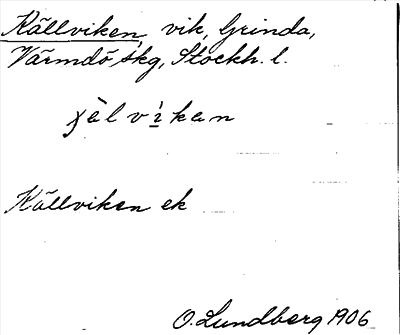 Källviken, vik, Grinda,
Värmdö skg, Stockh. l.
χὲlvìkan
Källviken ek
O. Lundberg 1906